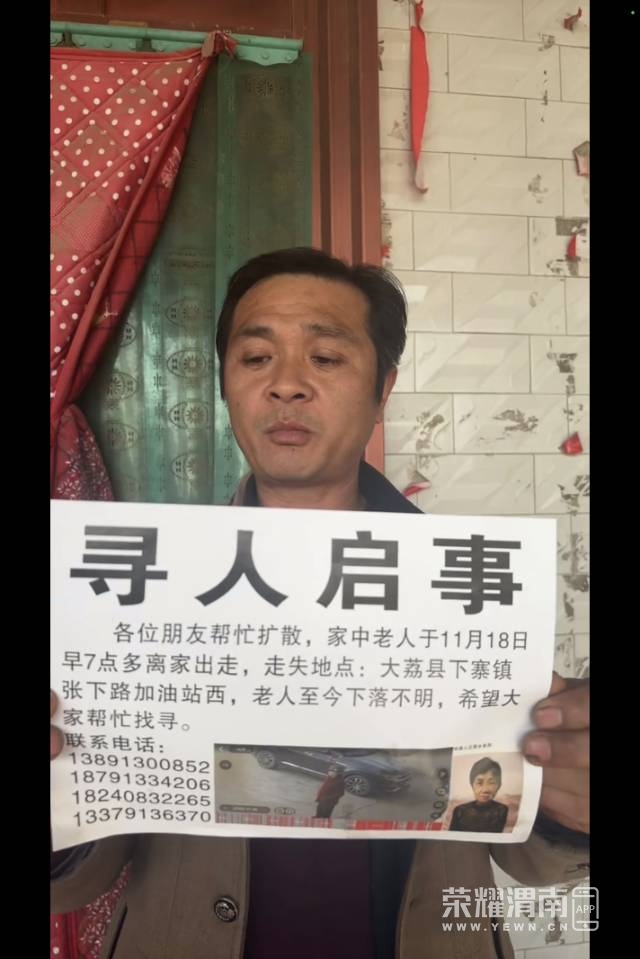 寻人启事
各位朋友帮忙扩散，家中老人于11月18日
早7点多离家出走，走失地点：大荔县下寨镇
张下路加油站西，老人至今下落不明，希望大
家帮忙找寻。
联系电话：
13891300852
18791334206
18240832265
13379136370
荣耀渭南
APP
WWW.YEWN.CN